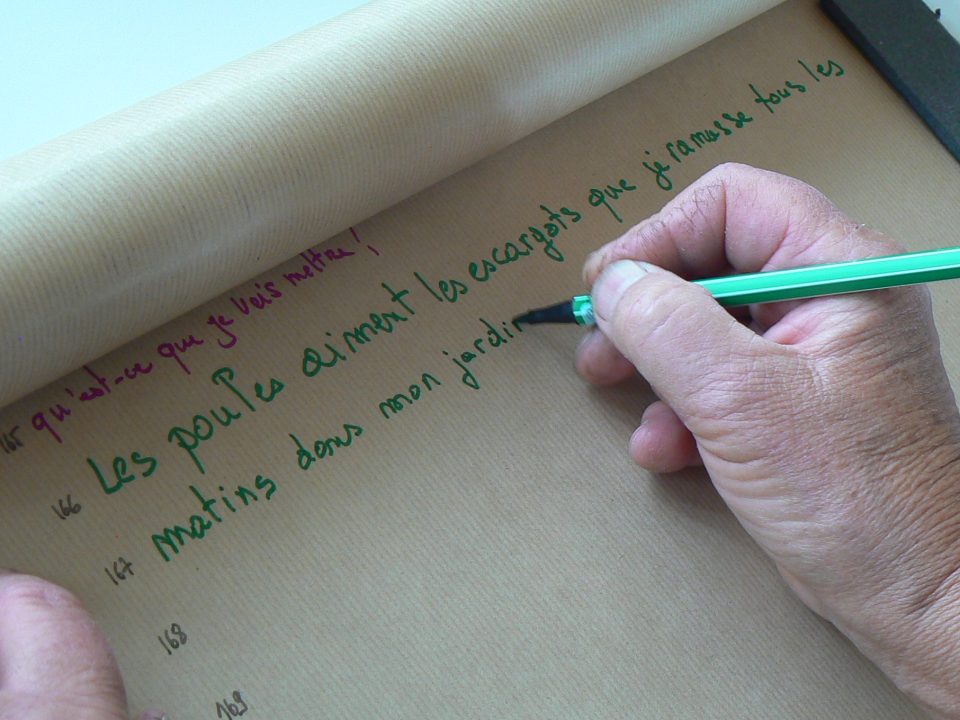 165 qu'est-ce que je vais mettre !
166 Les poules aiment les escargots que je ramasse tous les
167 matins dans mon jardin
168
169